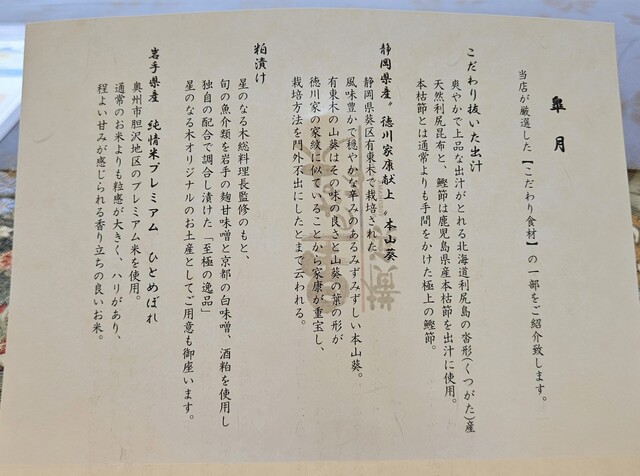 皐月
当店が厳選した【こだわり食材】の一部をご紹介致します。
こだわり抜いた出汁
爽やかで上品な出汁がとれる北海道利尻島の沓形(くつがた)産
天然利尻昆布と、鰹節は鹿児島県産本枯節を出汁に使用。
本枯節とは通常よりも手間をかけた極上の鰹節。
静岡県産〝徳川家康献上〟本山葵
静岡県葵区有東木で栽培された
風味豊かで穏やかな辛みのあるみずみずしい本山葵。
有東木の山葵はその味の良さと山葵の葉の形が
徳川家の家紋に似ていることから家康が重宝し、
栽培方法を門外不出にしたとまで云われる。
粕漬け
星のなる木総料理長監修のもと、
旬の魚介類を岩手の麹甘味噌と京都の白味噌、酒粕を使用し
独自の配合で調合し漬けた「至極の逸品」
星のなる木オリジナルのお土産としてご用意も御座います。
岩手県産 純情米プレミアム ひとめぼれ
奥州市胆沢地区のプレミアム米を使用。
通常のお米よりも粒感が大きく、ハリがあり、
程よい甘みが感じられる香り立ちの良いお米。